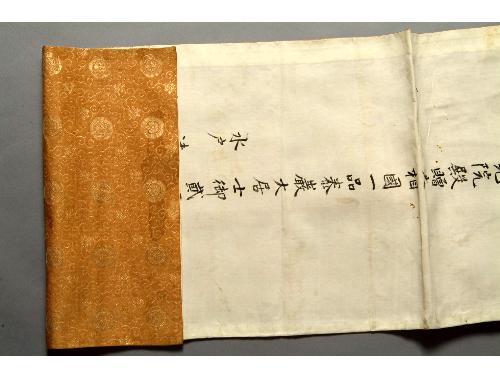 院殿贈相國一品泰巌大居士御
水戸